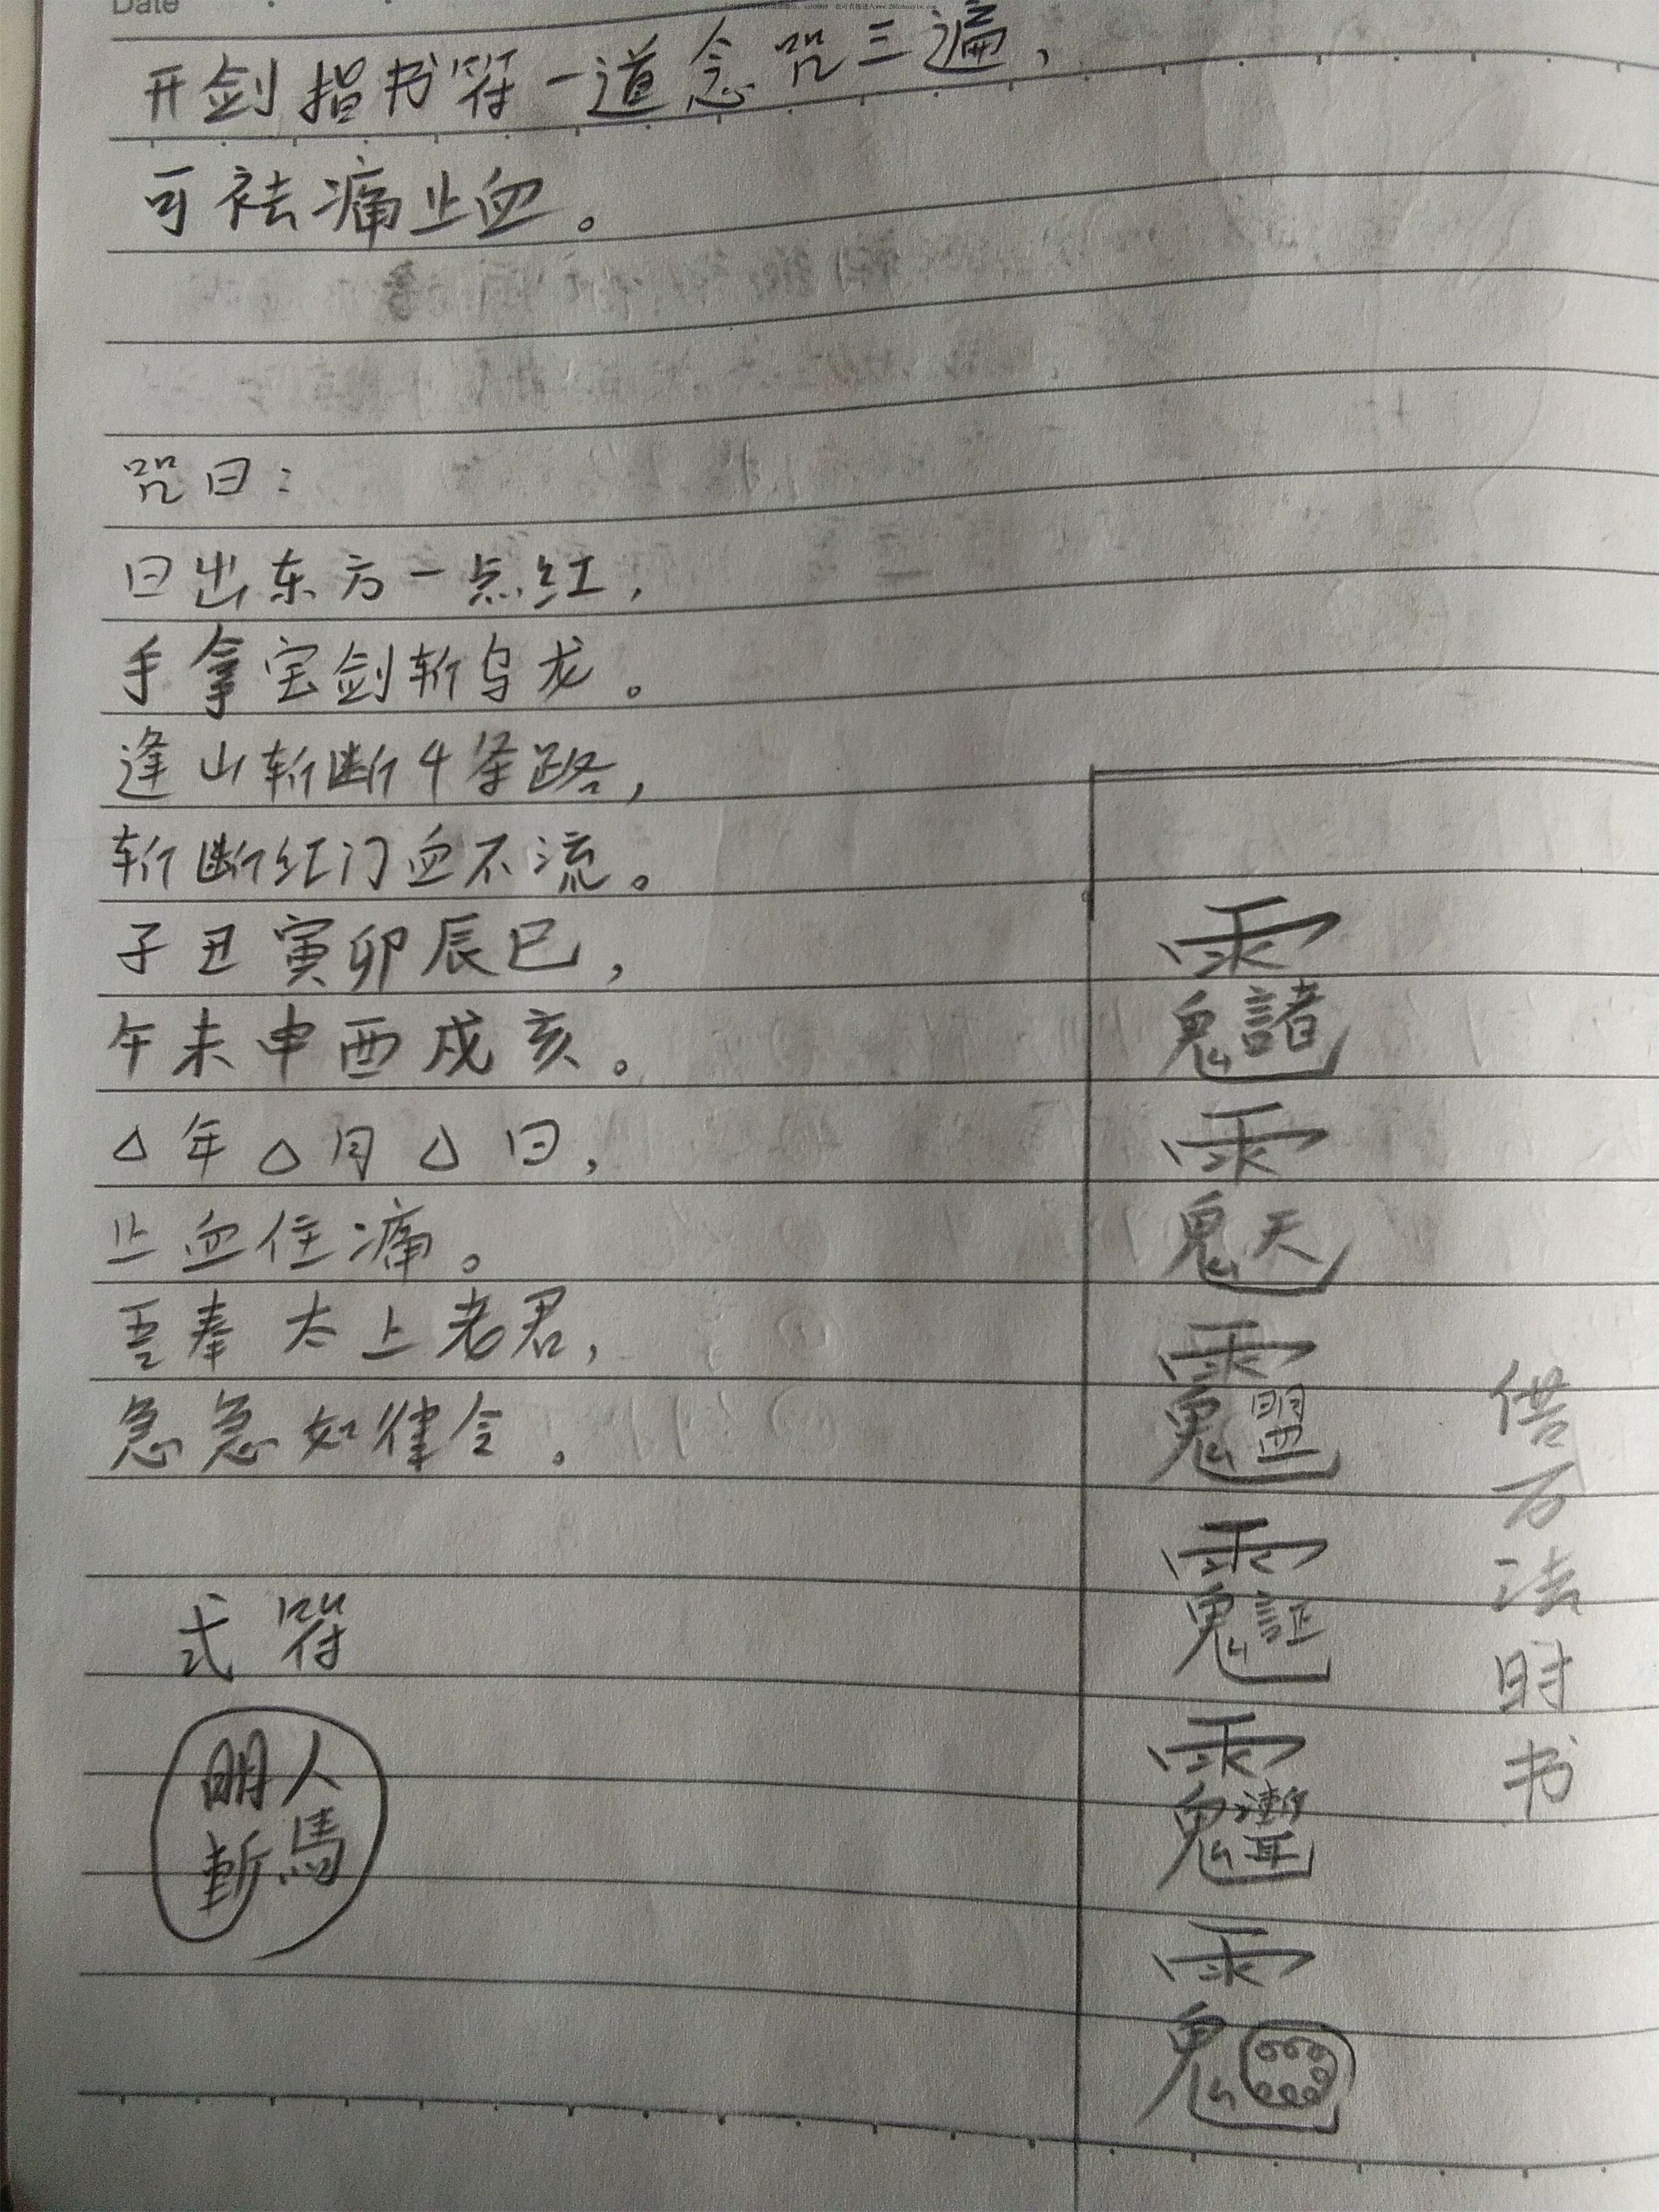 Date
开剑指书符一道念咒三遍、
可祛痛止血。
咒曰：
日出东方一点红，
手拿宝剑斩乌龙。
逢山斩断4条路，
斩断红门血不流。
子丑寅卯辰巳，
午未申酉戌亥。
△年△月△日，
止血住痛。
吾奉太上老君，
急急如律令．
式符
明人
斬馬
雨
鬼諸
雨
鬼天
雨
鬼盟
雨
鬼証
雨
鬼
雨
鬼
借万法时书